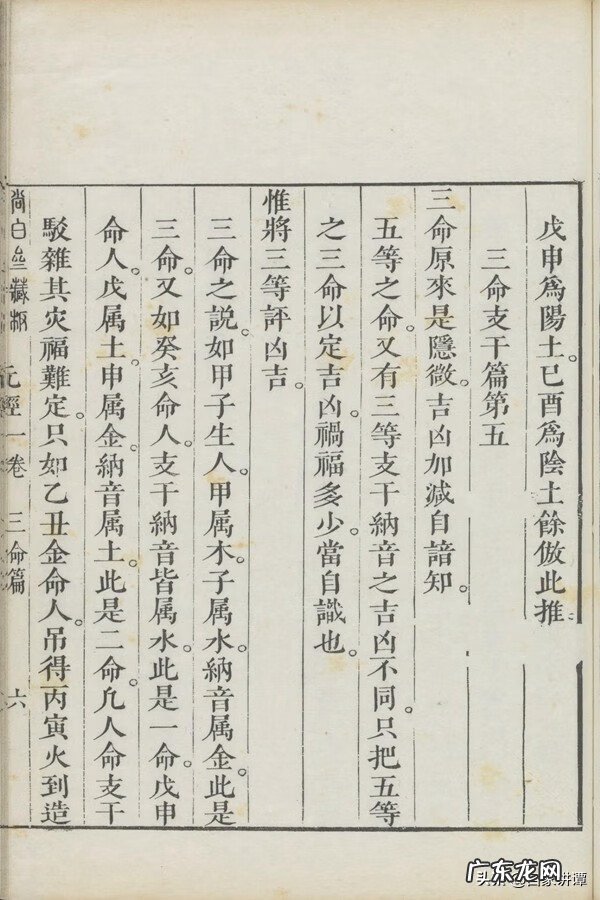 戊申為陽土己酉為陰土餘倣此推
三命支干篇第五
三命原來是隱微。吉凶加減自諳知。
五等之命。又有三等支干納音之吉凶不同。只把五等
之三命以定吉凶。禍福多少。當自識也。
惟將三等評凶吉。
三命之說。如甲子生人。甲属木。子属水。納音属金。此是
三命。又如癸亥命人。支干納音皆属水。此是一命。戊申
命人。戊属土。申属金。納音属土。此是二命。凡人命支干
駁雜其灾福難定。只如乙丑金命人。吊得丙寅火到造
尚白齋藏版 元經一卷 三命篇 六
广东龙网
头条 @国家讲谭